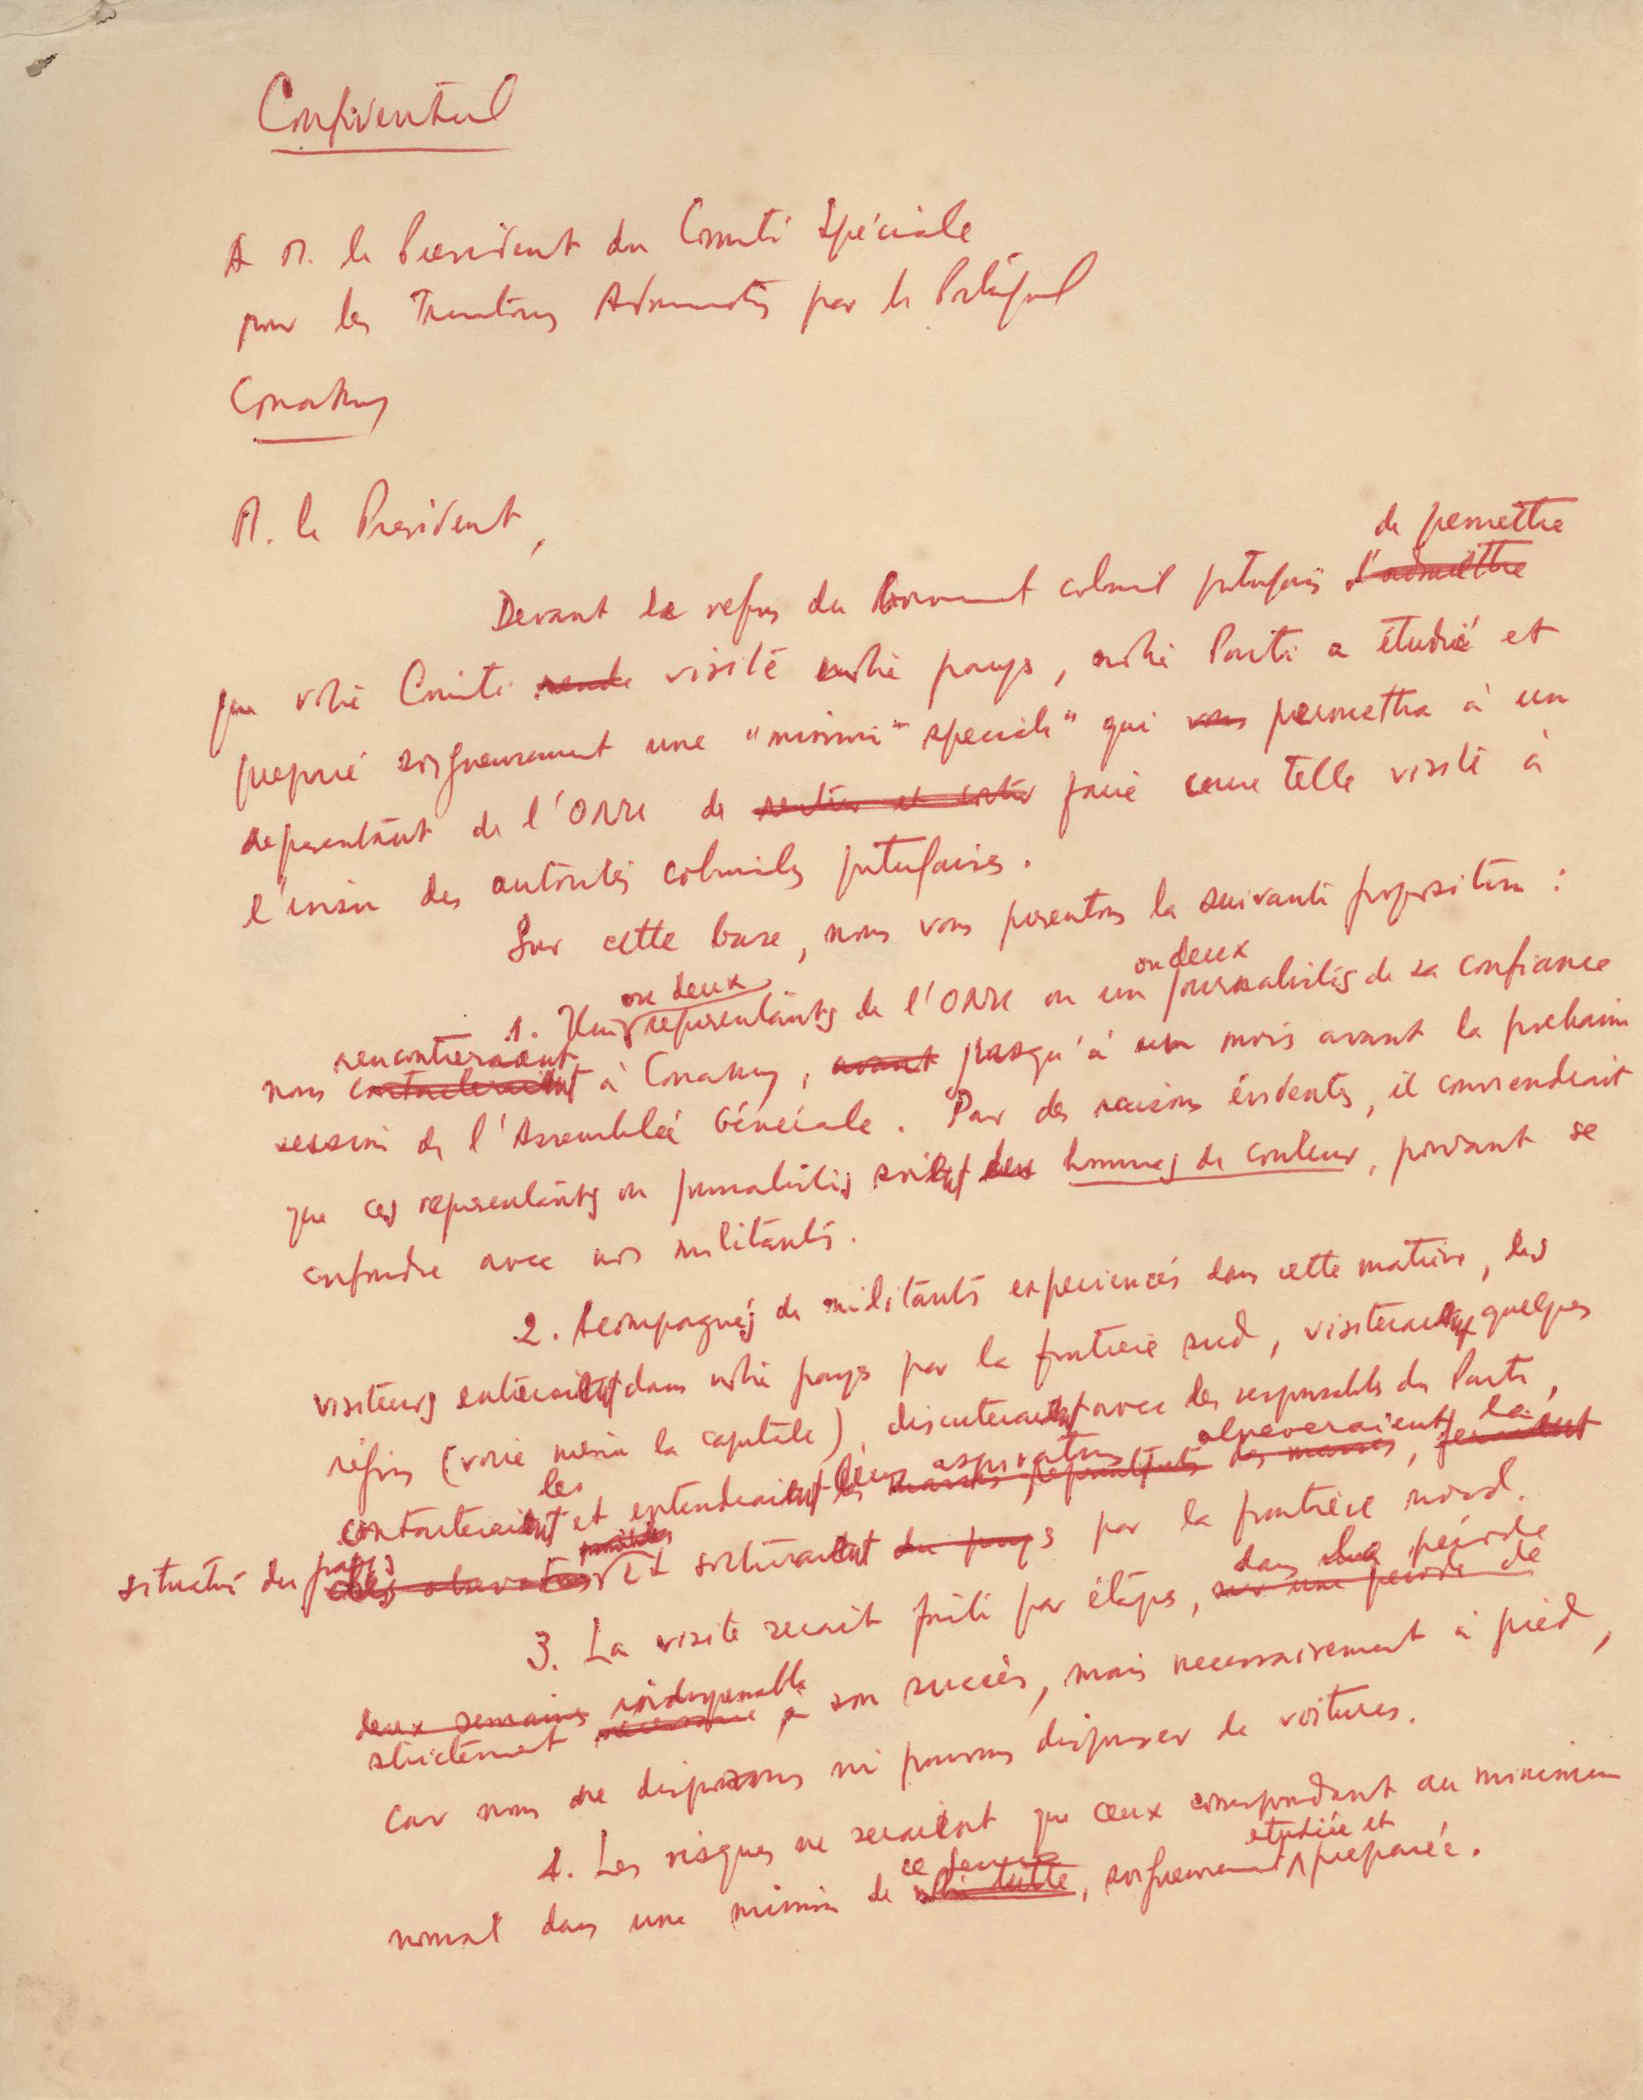 Confidentiel
A M. le President du Comité Spéciale
pour les Territoires Administrés par le Portugal
Conakry
M. le President,
de permettre
Devant le refus du Gouvernement colonial portugais d'admettre
que votre Comité rende visite notre pays, notre Parti a étudié et
preparé soigneusement une "mission speciale" qui vous permettra à un
representant de l'ONU de rentrer et sortir faire une telle visite à
l'insu des autorités coloniales portugaises.
Sur cette base, nous vous presentons la suivante proposition :
ou deux ou deux
1. Un representants de l'ONU ou un journalistes de sa confiance
rencontreraient
nous contacteraient à Conakry, avant jusqu'à un mois avant la prochaine
session de l'Assemblée Générale. Par des raisons évidentes, il conviendrait
que ces representants ou journalistes soient des hommes de couleur, pouvant se
confondre avec nos militants.
2. Acompagnés de militants experiencés dans cette matière, les
visiteurs entreraient dans notre pays par la frontière sud, visiteraient quelques
régions (voire même la capitale), discuteraient avec des responsables du Parti,
les aspirations observeraient la
contacteraient et entendraient les masses des masses,
situation du pays et sortiraient du pays par la frontière nord.
dans la période
3. La visite serait faite par étapes, sur une période de
deux semaines indispensable
strictement necessaire à son succès, mais necessairement à pied,
car nous ne disposons ni pouvons disposer de voitures.
4. Les risques ne seraient que ceux correspondant au minimum
ce genre etudiée et
normal dans une mission de notre lutte, soigneusement preparée.